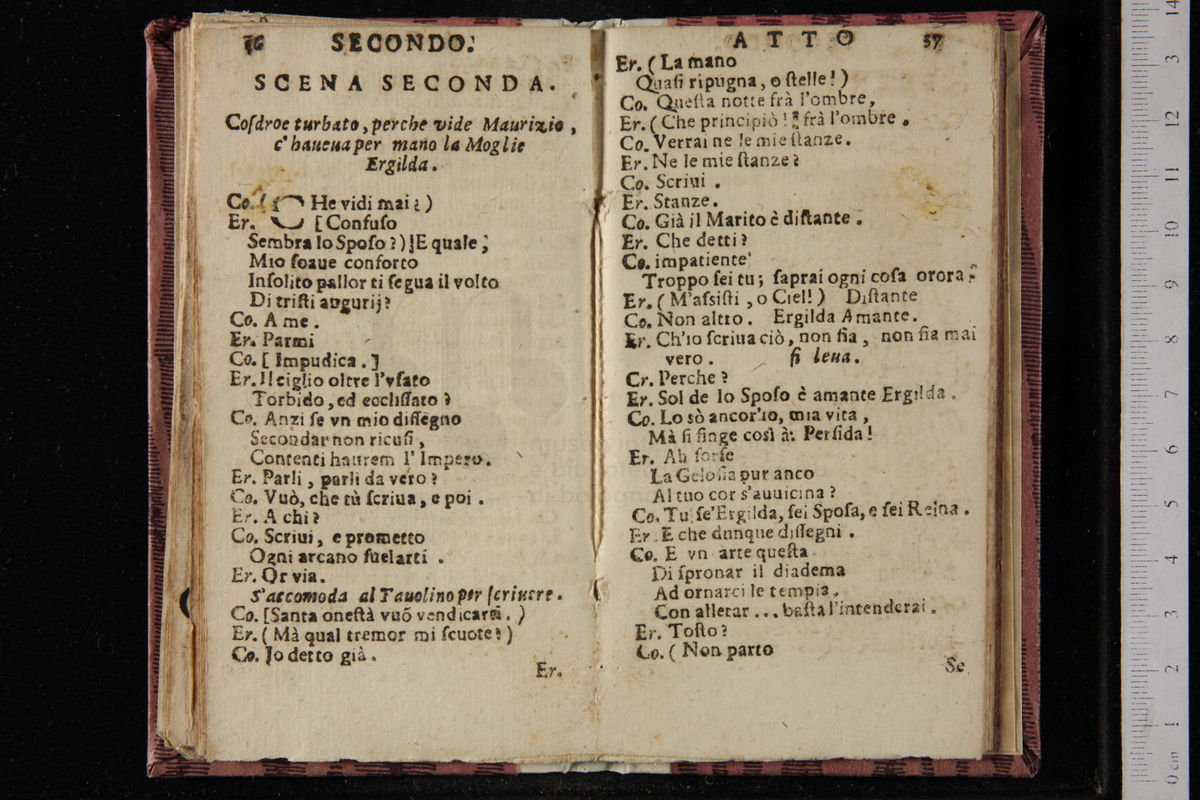 56 SECONDO.
SCENA SECONDA.
Coſdroe turbato, perche vide Maurizio,
c'haueua per mano la Moglie
Ergilda.
Co. ( CHe vidi mai? )
Er. [Confuſo
Sembra lo Spoſo?) E quale,
Mio ſoaue conforto
Inſolito pallor ti ſegua il volto
Di triſti augurij?
Co. A me.
Er. Parmi
Co. [ Impudica. ]
Er. Il ciglio oltre l'vſato
Torbido, ed eccliſſato?
Co. Anzi ſe vn mio diſſegno
Secondar non ricuſi,
Contenti haurem l'Impero.
Er. Parli, parli da vero?
Co. Vuò, che tù ſcriua, e poi.
Er. A chi?
Co. Scriui, e prometto
Ogni arcano ſuelarti.
Er. Or via.
s'accomoda al Tauolino per ſcriuere.
Co. [Santa oneſtà vuõ vendicarti.)
Er. (Mà qual tremor mi ſcuote?)
Co. Io detto già.
Er.
ATTO 57
Er. (La mano
Quaſi ripugna, o ſtelle!)
Co. Queſta notte frà l'ombre,
Er. (Che principiò!) frà l'ombre.
Co. Verrai ne le mie ſtanze.
Er. Ne le mie ſtanze?
Co. Scriui.
Er. Stanze.
Co. Già il Marito è diſtante.
Er. Che detti?
Co. impatiente
Troppo ſei tu; ſaprai ogni coſa or ora.
Er. (M'aſſiſti, o Ciel!) Diſtante
Co. Non altro. Ergilda Amante.
Er. Ch'io ſcriua ciò, non fia, non fia mai
vero. ſi leua.
Cr. Perche?
Er. Sol de lo Spoſo è amante Ergilda.
Co. Lo sò ancor'io, mia vita,
Mà ſi finge così à: Perſida!
Er. Ah forſe
La Geloſia pur anco
Al tuo cor s'auuicina?
Co. Tu ſe'Ergilda, ſei Spoſa, e ſei Reina.
Er. E che dunque diſſegni.
Co. E vn arte queſta
Di ſpronar il diadema
Ad ornarci le tempia.
Con alletar... baſta l'intenderai.
Er. Toſto?
Co. (Non parto
Se